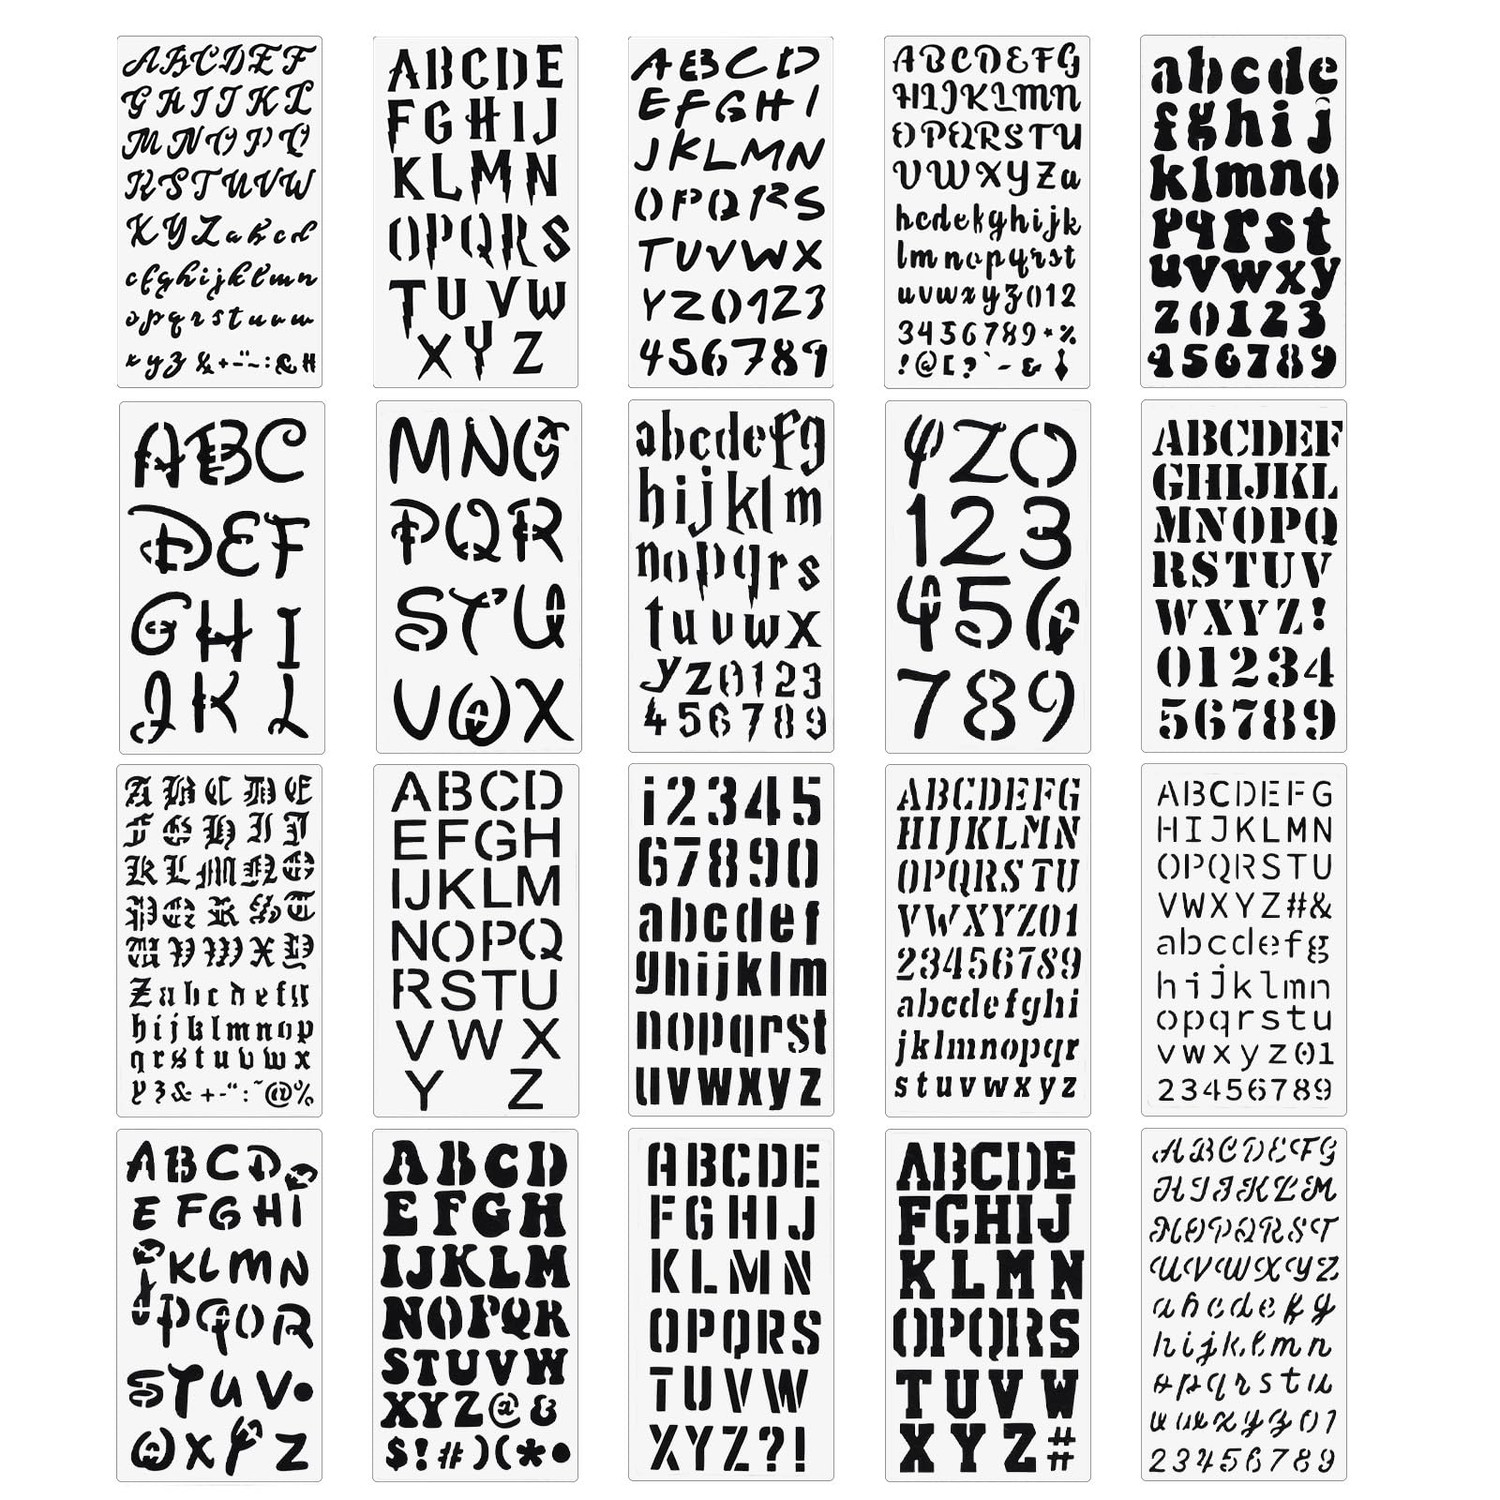 ABCDEF
GHIJKL
MNOPQ
RSTUVW
XYZabcd
efghijklmn
opqrstuvw
xyz &+-¨-~:&#
ABCDE
FGHIJ
KLMN
OPQRS
TUVW
XYZ
ABCD
EFGHI
JKLMN
OPQRS
TUVWX
YZ0123
456789
ABCDEFG
HIJKLMN
OPQRSTU
VWXYZa
bcdefghijk
lmnopqrst
uvwxyz012
3456789*%
!@[?`-&
abcde
fghij
klmno
pqrst
uvwxy
z0123
456789
ABC
DEF
GHI
JKL
MNO
PQR
STU
VWX
abcdefg
hijklm
nopqrs
tuvwx
yz0123
456789
YZ0
123
456
789
ABCDEF
GHIJKL
MNOPQ
RSTUV
WXYZ!
01234
56789
ABCDE
FGHIJ
KLMNO
PQRST
UVWXY
Zabcdefg
hijklmnop
qrstuvwx
yz&+-":~@%
ABCD
EFGH
IJKLM
NOPQ
RSTU
VWX
YZ
12345
67890
abcdef
ghijklm
nopqrst
uvwxyz
ABCDEFG
HIJKLMN
OPQRSTU
VWXYZ01
23456789
abcdefghi
jklmnopqr
stuvwxyz
ABCDEFG
HIJKLMN
OPQRSTU
VWXYZ#&
abcdefg
hijklmn
opqrstu
vwxyz01
23456789
ABCD
EFGHI
JKLMN
PQOR
STUV
WXYZ
ABCD
EFGH
IJKLM
NOPQR
STUVW
XYZ@&
$!#)(*●
ABCDE
FGHIJ
KLMN
OPQRS
TUVW
XYZ?!
ABCDE
FGHIJ
KLMN
OPQRS
TUVW
XYZ#
ABCDEFG
HIJKLM
NOPQRST
UVWXYZ
abcdefg
hijklmn
opqrstu
vwxyz01
23456789